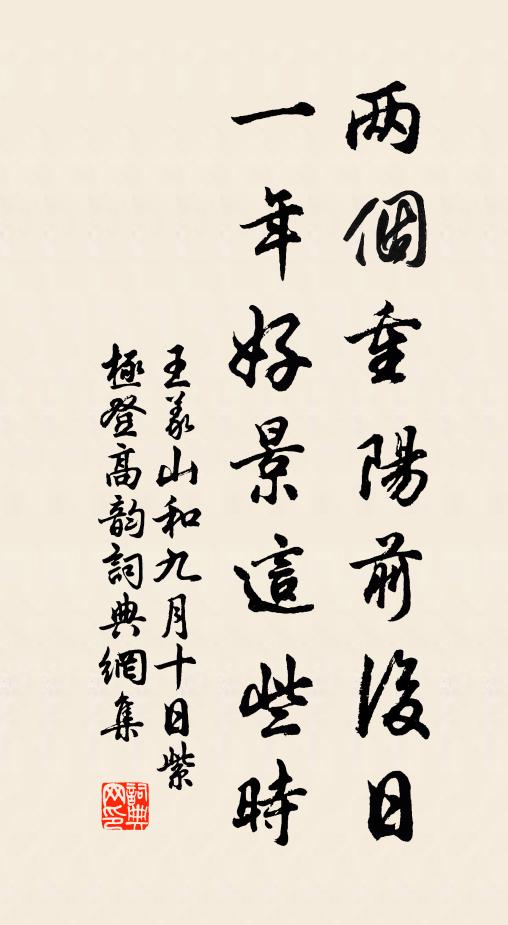 两個重陽前後日
一年好景這些時
王義山和九月十日紫
極登高韵詞典網集
詞典网印